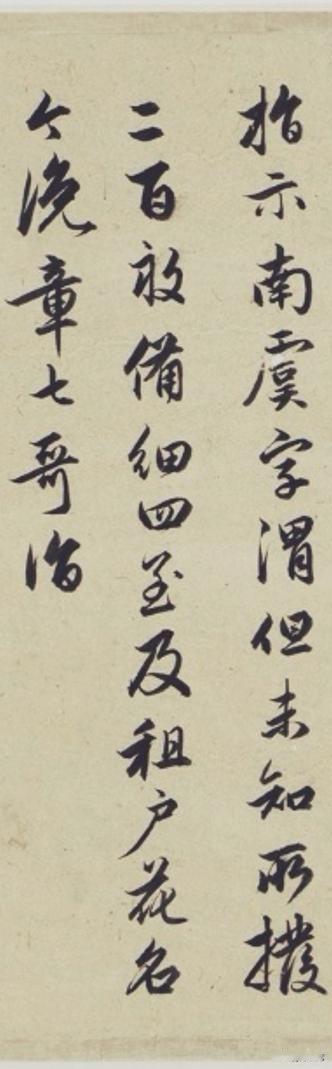 指示南虞字渭但未知所撥
二百畝備細四至及租户花名
今浼章七哥詣